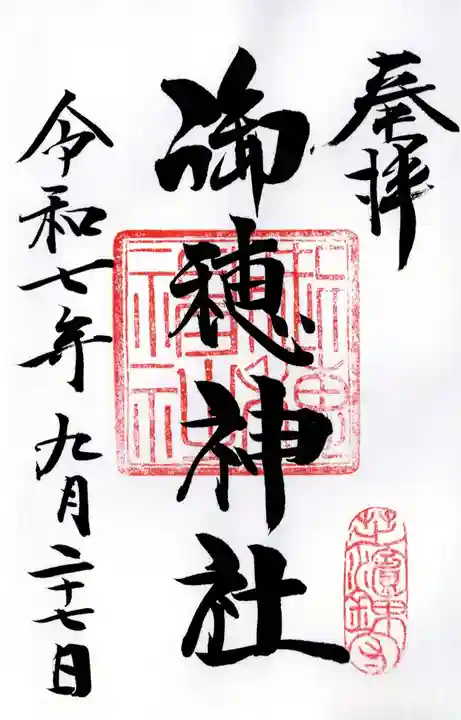 奉拝
御穂神社
令和七年九月二十七日
芝濱鎮守